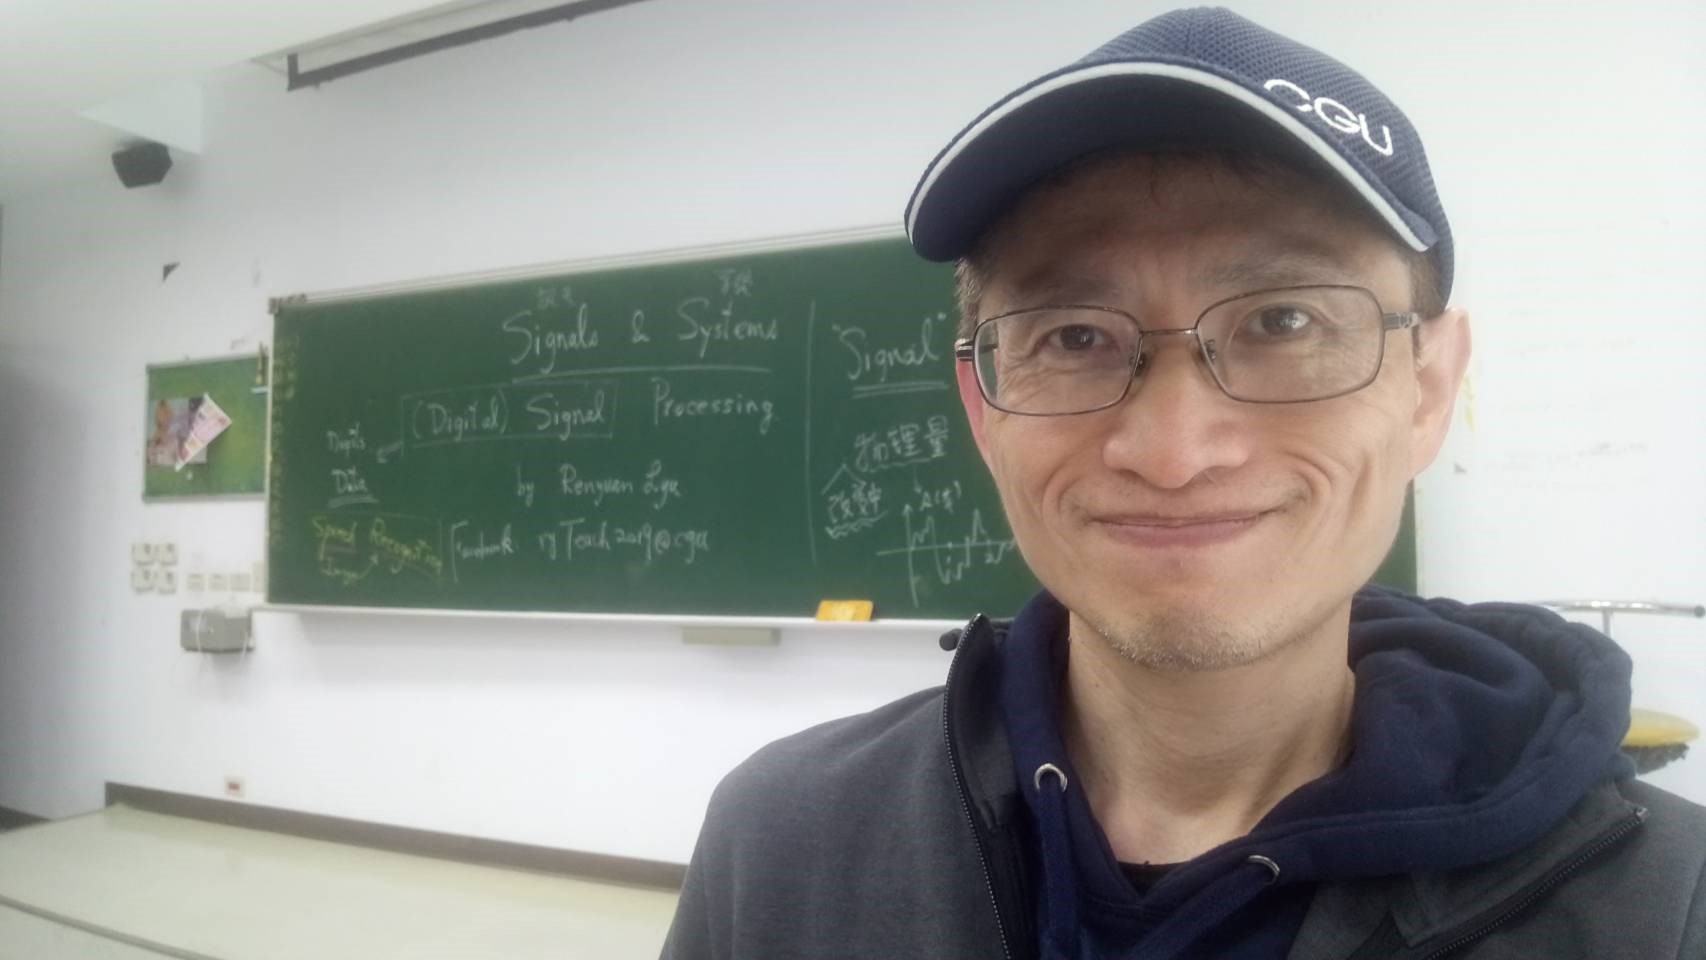 CGU
訊號 系統
Signals & Systems
(Digital) Signal Processing
Digits
Data
by Renyuan Lyu
Speech Recognition
Image
Facebook ryTeach2019@cgu
"Signal"
物理量
改變